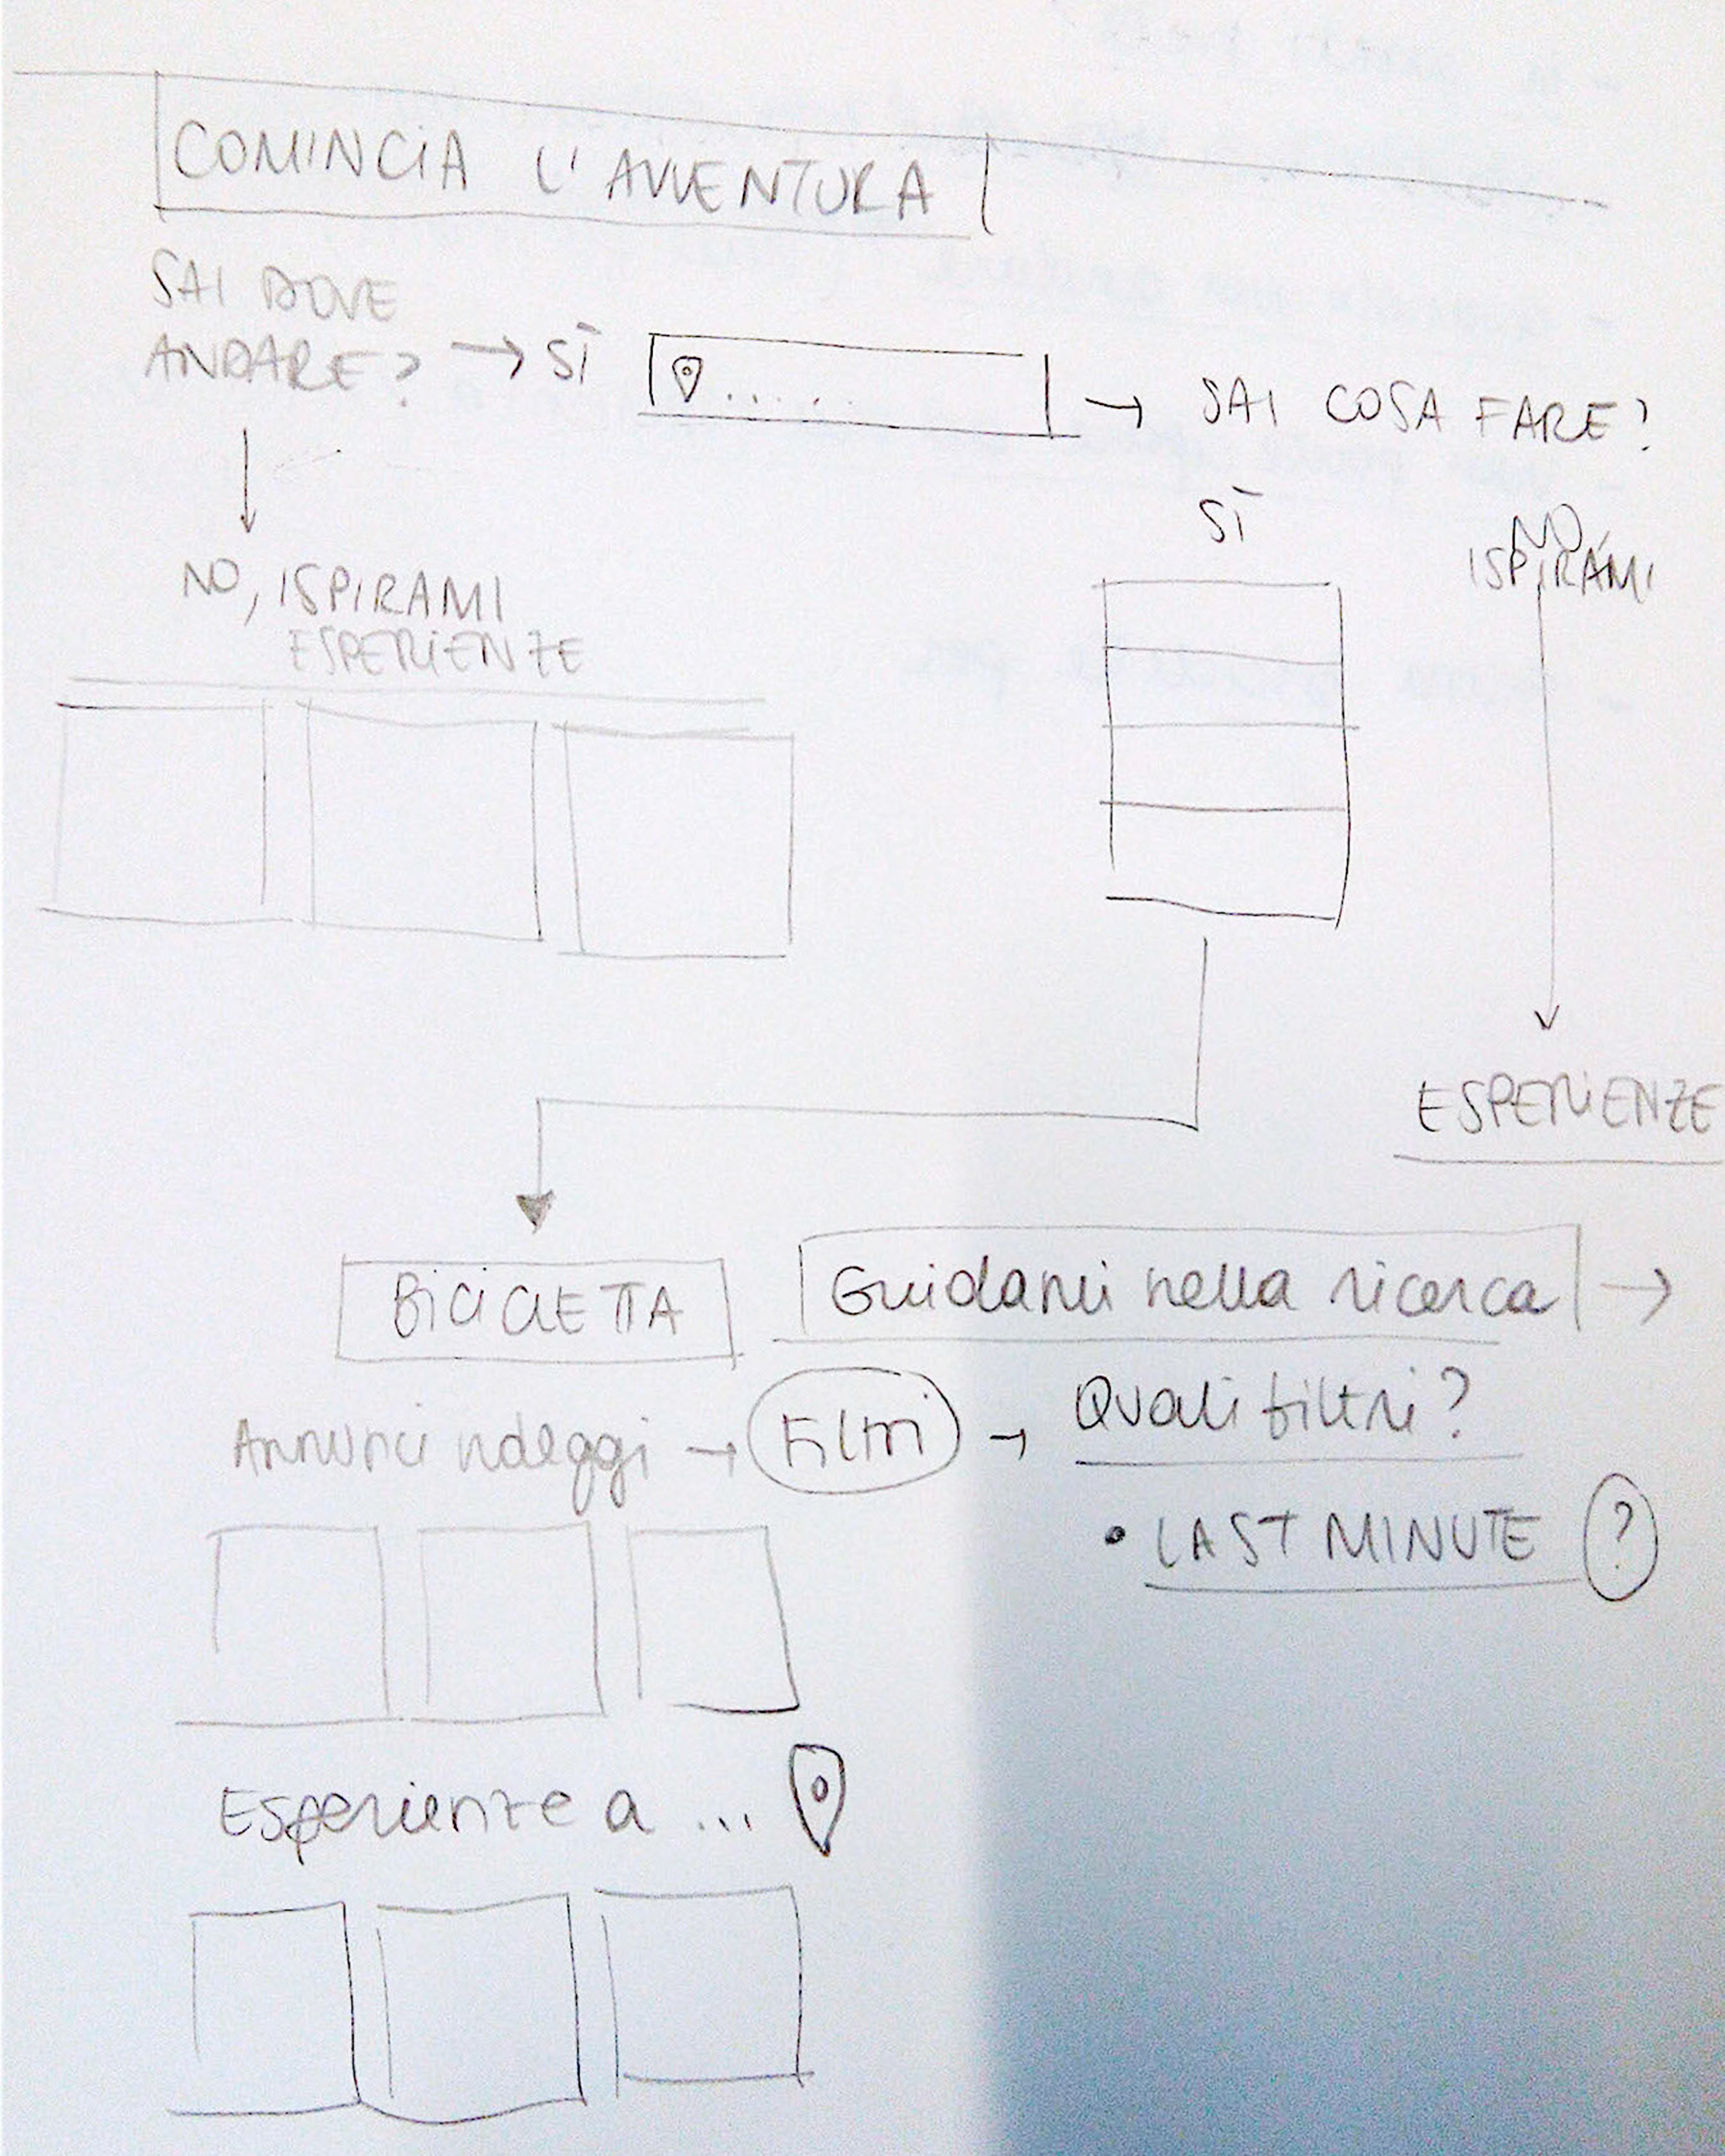 COMINCIA L'AVVENTURA
SAI DOVE
ANDARE? → SÌ ..... → SAI COSA FARE?
SÌ
NO,
ISPIRAMI
NO, ISPIRAMI
ESPERIENZE
ESPERIENZE
BICICLETTA
Guidami nella ricerca →
Annunci noleggi → Filtri → Quali filtri?
• LAST MINUTE ?
Esperienze a ...